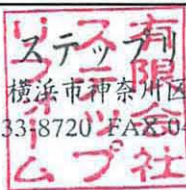 ステップリ
横浜市神奈川区
33-8720 FAX.0
有限会社
ステップ
リフォーム